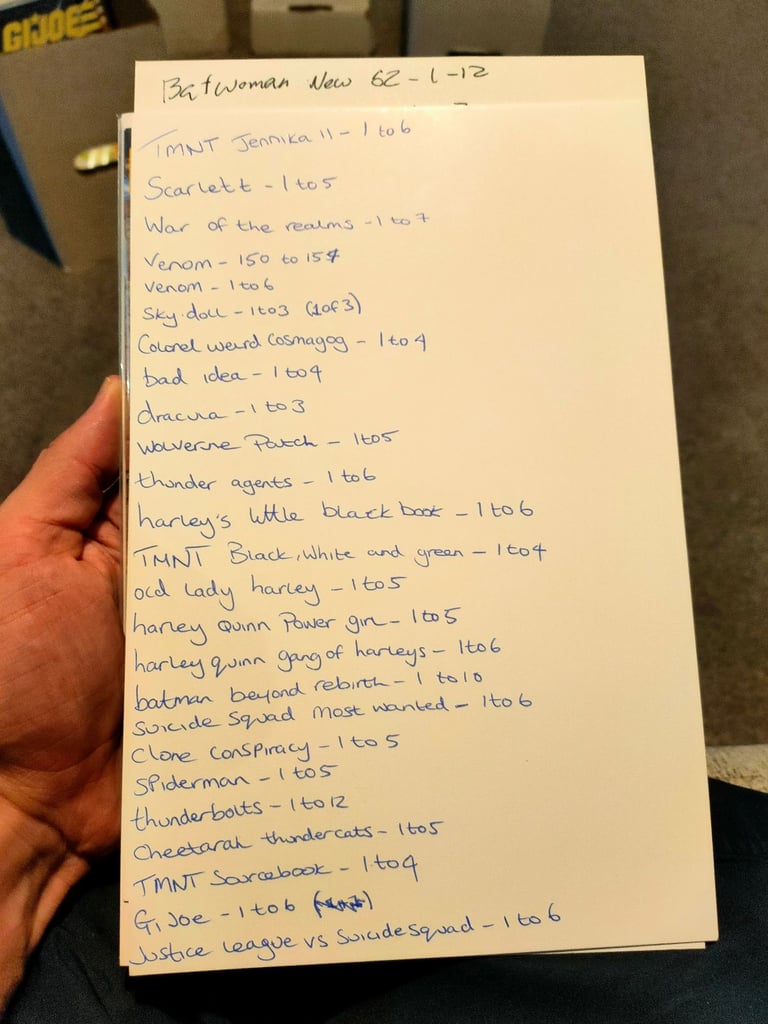 GIJOE
Batwoman New 62 - 1 - 12
TMNT Jennika 11 - 1 to 6
Scarlett - 1 to 5
War of the realms - 1 to 7
Venom - 150 to 154
venom - 1 to 6
Sky.doll - 1 to 3 (1 of 3)
Colonel weird Cosmagog - 1 to 4
bad idea - 1 to 4
dracula - 1 to 3
wolverine Patch - 1 to 5
thunder agents - 1 to 6
harley's little black book - 1 to 6
TMNT Black, white and green - 1 to 4
ocd lady harley - 1 to 5
harley Quinn Power girl - 1 to 5
harley quinn gang of harleys - 1 to 6
batman beyond rebirth - 1 to 10
Suicide Squad Most wanted - 1 to 6
Clone Conspiracy - 1 to 5
Spiderman - 1 to 5
thunderbolts - 1 to 12
Cheetarah thundercats - 1 to 5
TMNT Sourcebook - 1 to 4
G.I Joe - 1 to 6
Justice League vs Suicide squad - 1 to 6